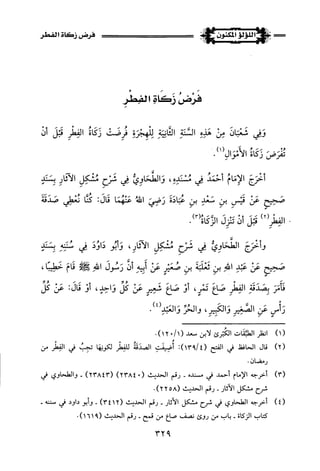 اللؤلؤ المكنون
فرض زكاة الفطر
فَرْضُ زَكَاةِ الفِطْرِ
وَفِي شَعْبَانَ مِنْ هَذِهِ السَّنَةِ الثَّانِيَةِ لِلْهِجْرَةِ فُرِضَتْ زَكَاةُ الفِطْرِ قَبْلَ أَنْ
تُفْرَضَ زَكَاةُ الأَمْوَالِ(١).
أَخْرَجَ الإِمَامُ أَحْمَدُ فِي مُسْنَدِهِ، وَالطَّحَاوِيُّ فِي شَرْحِ مُشْكِلِ الآثَارِ بِسَنَدٍ
صَحِيحٍ عَنْ قَيْسِ بنِ سَعْدِ بنِ عُبَادَةَ رَضِيَ اللهُ عَنْهُمَا قَالَ: كُنَّا نُعْطِي صَدَقَةَ
الفِطْرِ(٢) قَبْلَ أَنْ تَنْزِلَ الزَّكَاةُ(٣).
وأَخْرَجَ الطَّحَاوِيُّ فِي شَرْحِ مُشْكِلِ الآثَارِ، وَأَبُو دَاوُدَ فِي سُنَنِهِ بِسَنَدٍ
صَحِيحٍ عَنْ عَبْدِ اللهِ بنِ ثَعْلَبَةَ بنِ صُعَيْرٍ عَنْ أَبِيهِ أَنَّ رَسُولَ اللهِ ﷺ قَامَ خَطِيبًا،
فَأَمَرَ بِصَدَقَةِ الفِطْرِ صَاعَ تَمْرٍ، أَوْ صَاعَ شَعِيرٍ عَنْ كُلِّ وَاحِدٍ، أَوْ قَالَ: عَنْ كُلِّ
رَأْسٍ عَنِ الصَّغِيرِ وَالكَبِيرِ، والحُرِّ وَالعَبْدِ(٤).
(١) انظر الطَّبَقَات الكُبْرَى لابن سعد (١/١٢٠).
(٢) قال الحافظ في الفتح (٤/١٣٩): أُضِيفَتِ الصدَقَةُ للفِطْرِ لكونِهَا تجِبُ في الفِطْرِ من
رمضان.
(٣) أخرجه الإمام أحمد في مسنده - رقم الحديث (٢٣٨٤٠) (٢٣٨٤٣) - والطحاوي في
شرح مشكل الآثار - رقم الحديث (٢٢٥٨).
(٤) أخرجه الطحاوي في شرح مشكل الآثار - رقم الحديث (٣٤١٢) - وأبو داود في سننه -
كتاب الزكاة - باب من روى نصف صاع من قمح - رقم الحديث (١٦١٩).
٣٢٩